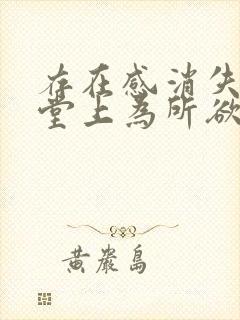 存在感消失
堂上為所欲
黃巖島